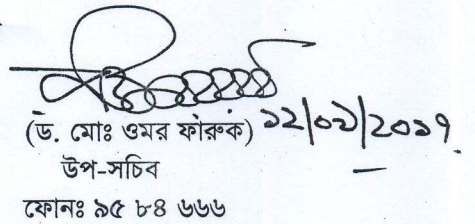 (ড. মোঃ ওমর ফারুক) ১২/০৯/২০১৭
উপ-সচিব
ফোনঃ ৯৫ ৮৪ ৬৬৬